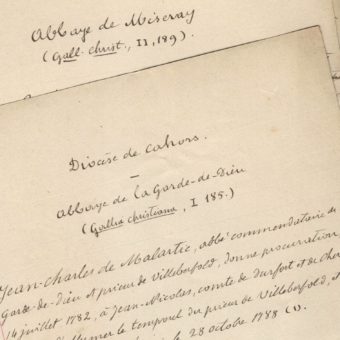 Abbaye de Miseray
(Gall. christ., II, 189)
Diocèse de Cahors.
Abbaye de la Garde-de-Dieu
(Gallia christiana, I 185.)
Jean-Charles de Malartic, abbé commendataire de
Garde-de-Dieu et prieur de Villeberfold, donne procuration,
14 juillet 1782, à Jean-Nicolas, comte de Durfort et de
le temporel du prieuré de Villeberfold, et
28 octobre 1788 (1).